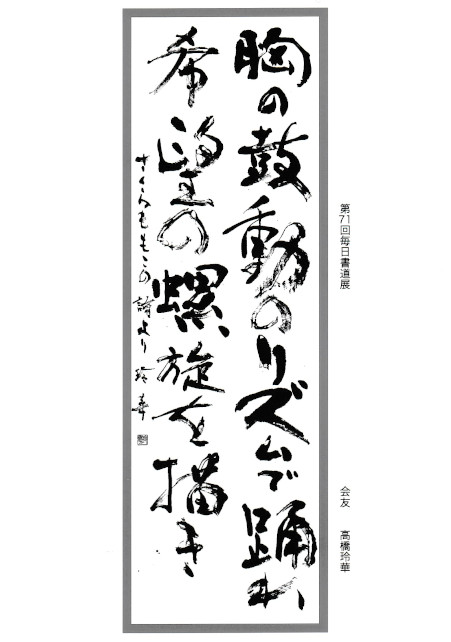 胸の鼓動のリズムで踊れ
希望の螺旋を描き
さくらももこの詩より 玲華
第71回毎日書道展
会友 高橋玲華